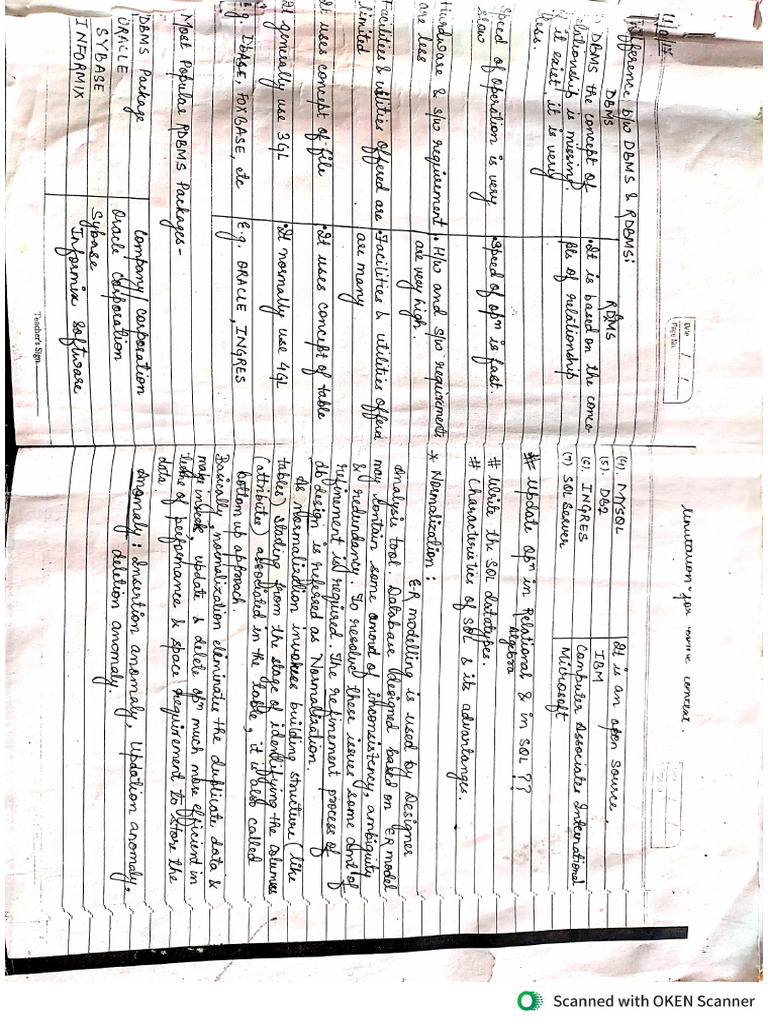 Difference b/w DBMS & RDBMS:
DBMS
RDMS
DBMS the concept of
relationship is missing.
if it exist it is very
less.
• It is based on the conce-
ple of relationship
Speed of Operation is very
slow
• Speed of opⁿ is fast.
Hardware & s/w requirement
are less
• H/w and s/w requirements
are very high.
Facilities & utilities offered are
limited
• Facilities & utilities offerd
are many
It uses concept of file
• It uses concept of table
It generally use 3GL
• It normally use 4GL
Eg: DBASE, FOXBASE, etc
E.g. ORACLE, INGRES
Most Popular RDBMS Packages-
DBMS Package
Company/corporation
ORACLE
Oracle corporation
SYBASE
Sybase
INFORMIX
Informix software
Teacher's Sign
Date / /
Page No.
(4). MYSQL
It is an open source.
(5). DB2
IBM
(6). INGRES
Computer Associates International
(7) SQL Server
Microsoft
# Update opⁿ in Relational & in SQL ??
algebra
# Write the SQL datatypes.
# Characteristics of SQL & its advantages.
* Normalization :
ER modelling is used by Designer
analysis tool. Database designed based on ER model
may contain some amount of inconsistency, ambiguity
& redundancy. To resolve these issues some amt of
refinement is required. The refinement process of
db design is referred as Normalization.
As normalization involves building structure (like
tables) stading from the stage of identifying the columns
(attributes) associated in the table, it is also called
bottom up approach.
Basically, normalization eliminates the duplicate data &
make insert, update & delete opⁿ much more efficient in
terms of performance & space requirement to store the
data.
Anomaly: Insertion anomaly, Updation anomaly,
deletion anomaly.
Scanned with OKEN Scanner